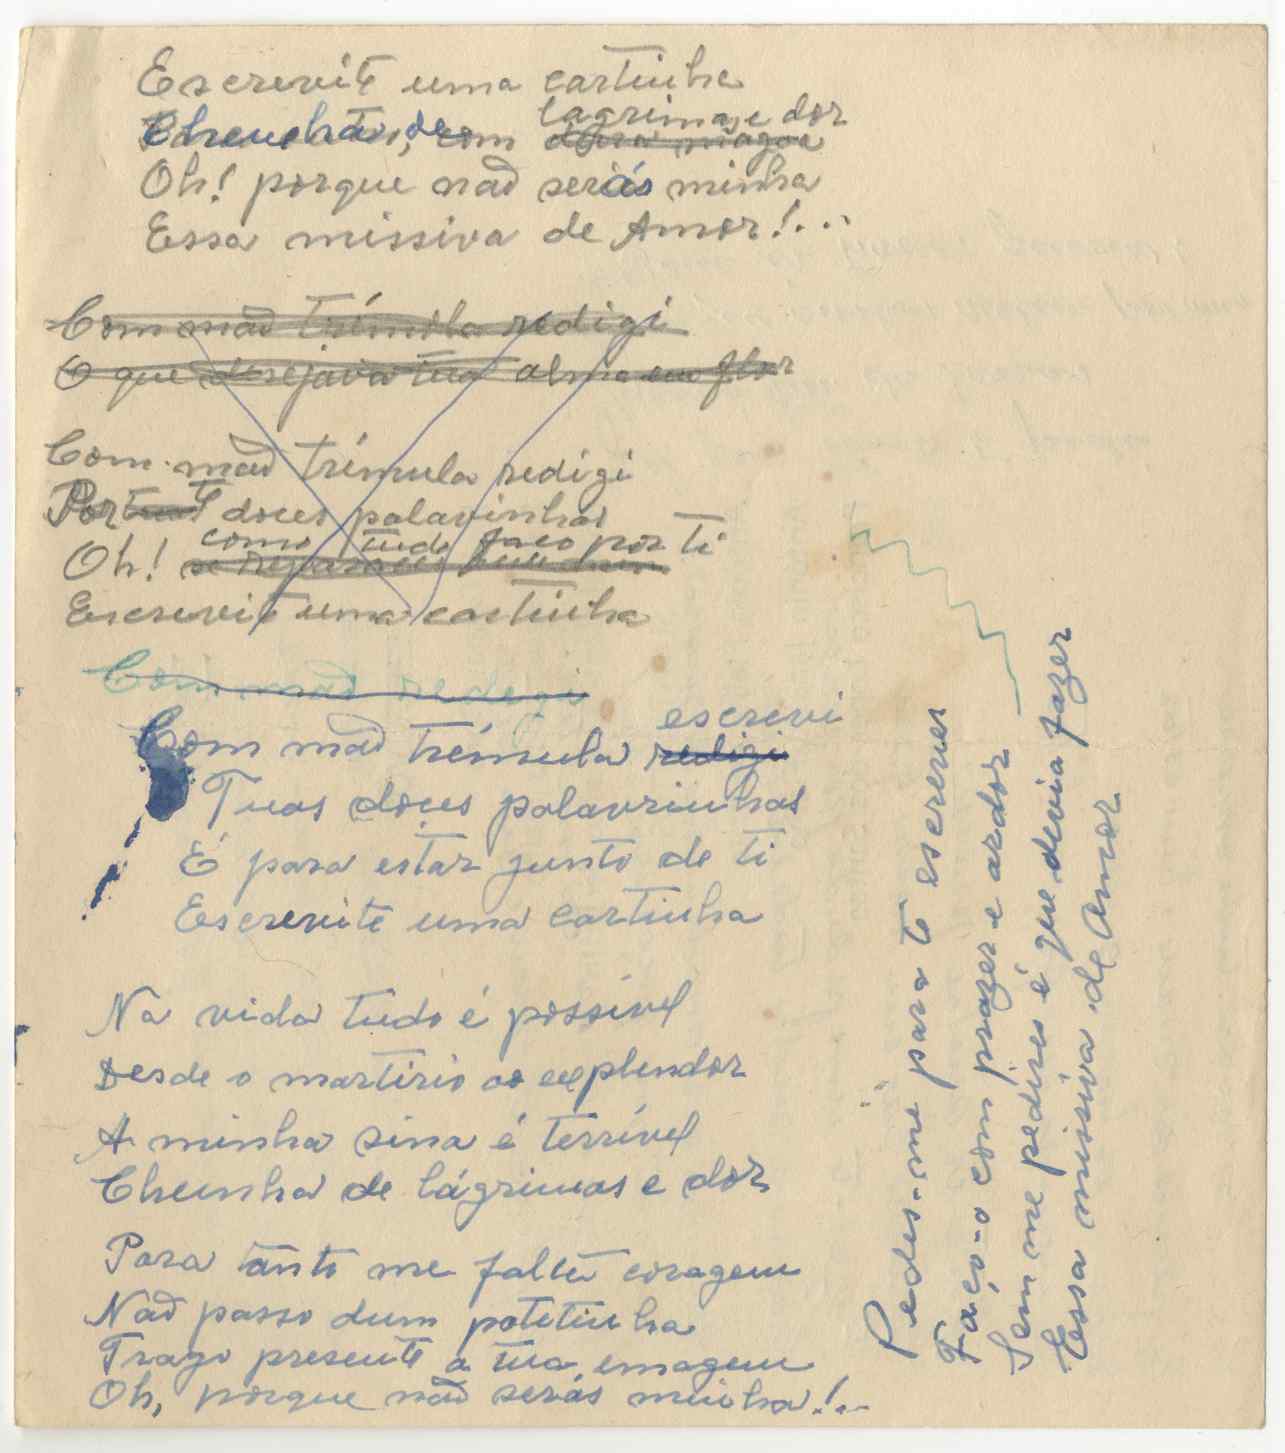 Escrevite uma cartinha
Cheinha de com lagrimas e dor
Oh! porque não serás minha
Essa missiva de Amor!...
Com mão trémola redigi
O que desejava tua alma em flor
Com mão trémula redigi
Por doces palavrinhas
Oh! como tudo faço por ti
Escrevite uma cartinha
Com mão redegi
Com mão trémula redigi escrevi
Tuas doces palavrinhas
É para estar junto de ti
Escrevite uma cartinha
Na vida tudo é possível
Desde o martirio ao explendor
A minha sina é terrível
Cheinha de lágrimas e dor
Para tanto me falta coragem
Não passo dum potetinha
Trago presente a tua emagem
Oh, porque não serás minha!...
Pedes-me para te escrever
Faço-o com prazer e ardor
Sem me pedires é que devia fazer
Essa missiva de Amor